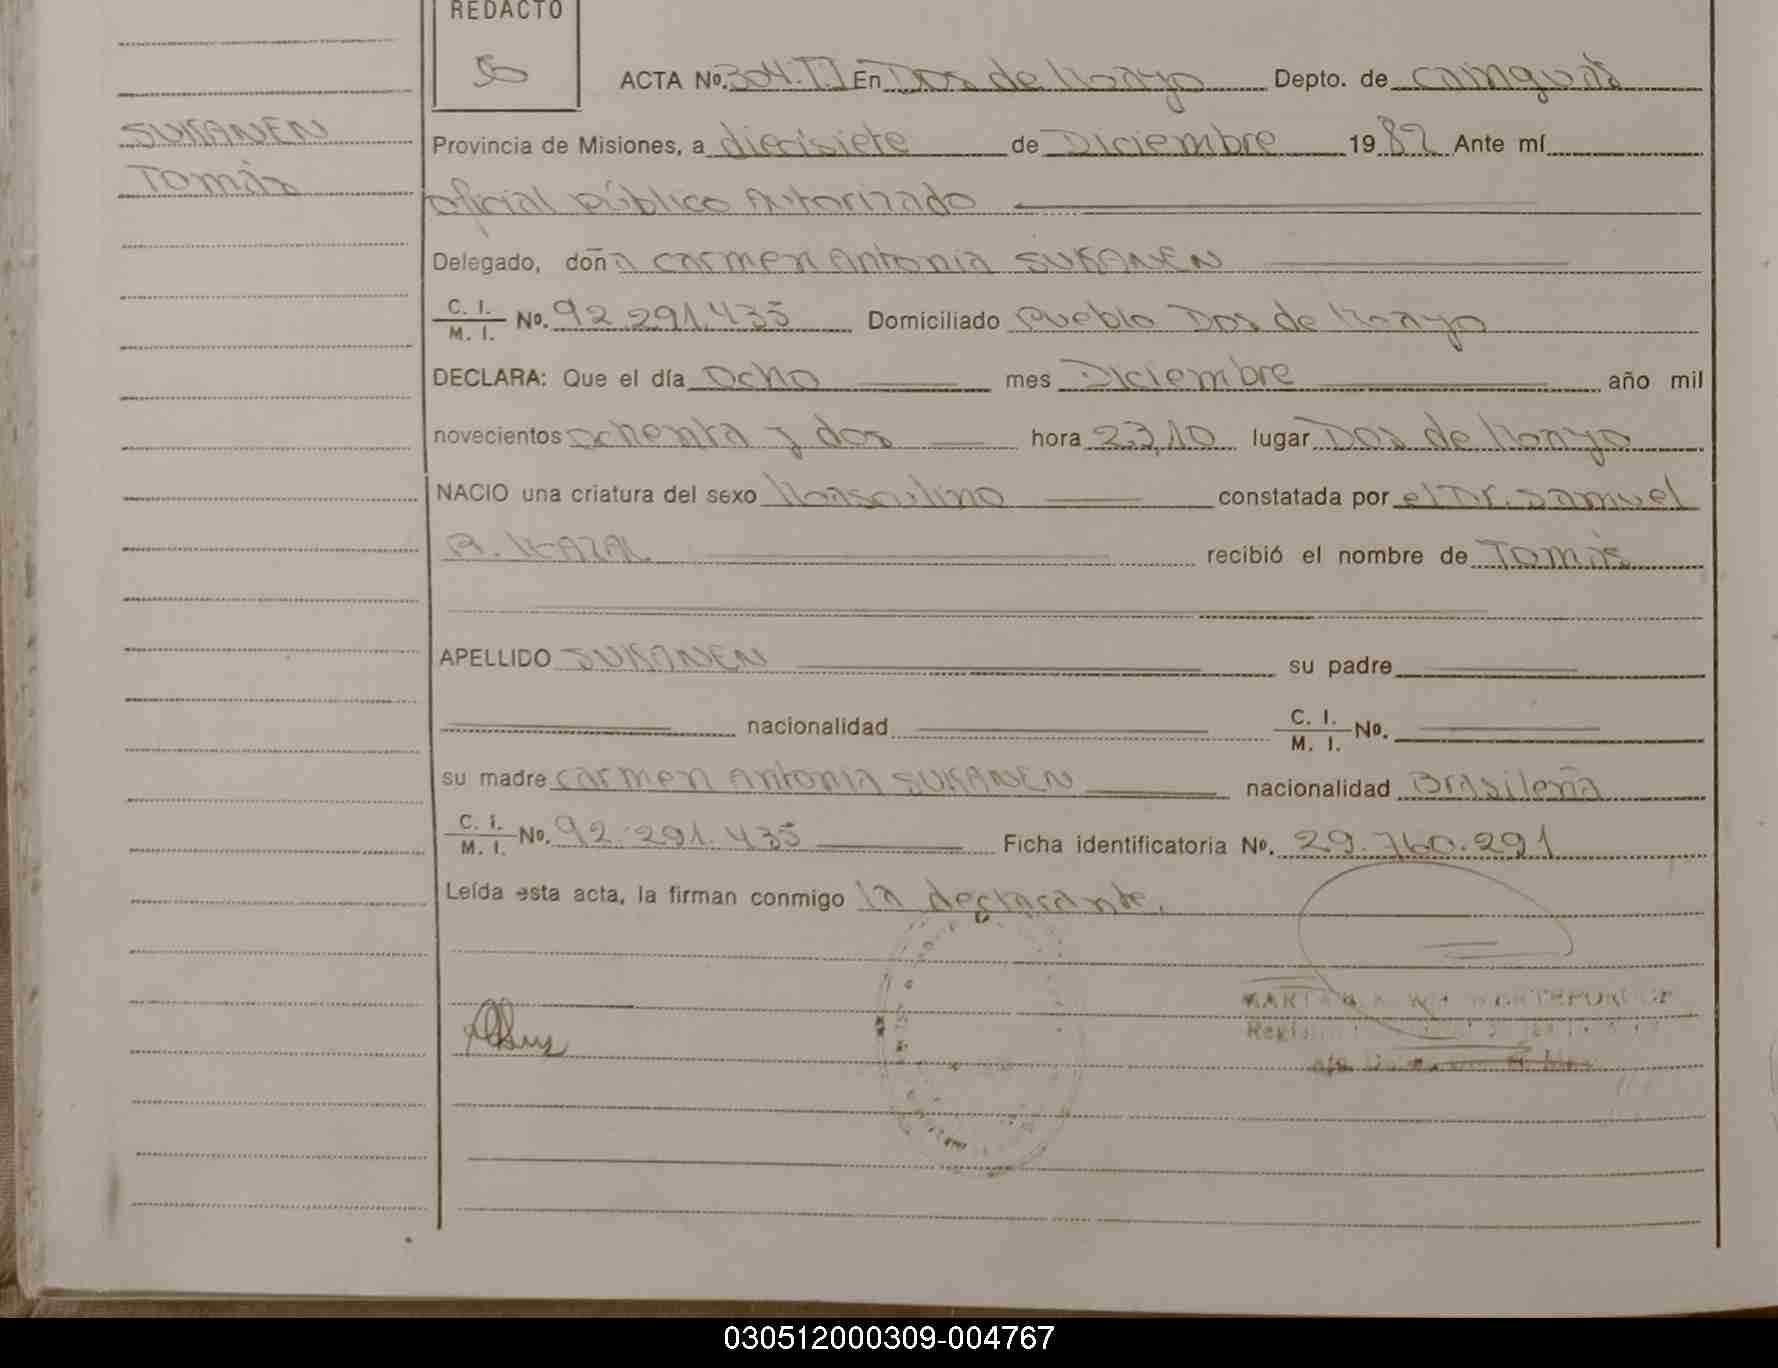 REDACTO
ACTA No. 304. TI En Dos de Mayo Depto. de Cainguás
SUKANEN
Provincia de Misiones, a diecisiete de Diciembre 1982 Ante mí
Tomás
oficial público Autorizado
Delegado, doña Carmen Antonia SUKANEN
C. I. M. I. No. 92.291.435 Domiciliado Pueblo Dos de Mayo
DECLARA: Que el día Ocho mes Diciembre año mil
novecientos ochenta y dos hora 23,10 lugar Dos de Mayo
NACIO una criatura del sexo Masculino constatada por el Dr. Samuel
A. KAZAL recibió el nombre de Tomás
APELLIDO SUKANEN su padre
nacionalidad C. I. M. I. No.
su madre Carmen Antonia SUKANEN nacionalidad Brasileña
C. I. M. I. No. 92.291.435 Ficha identificatoria No. 29.760.291
Leída esta acta, la firman conmigo la declarante.
030512000309-004767